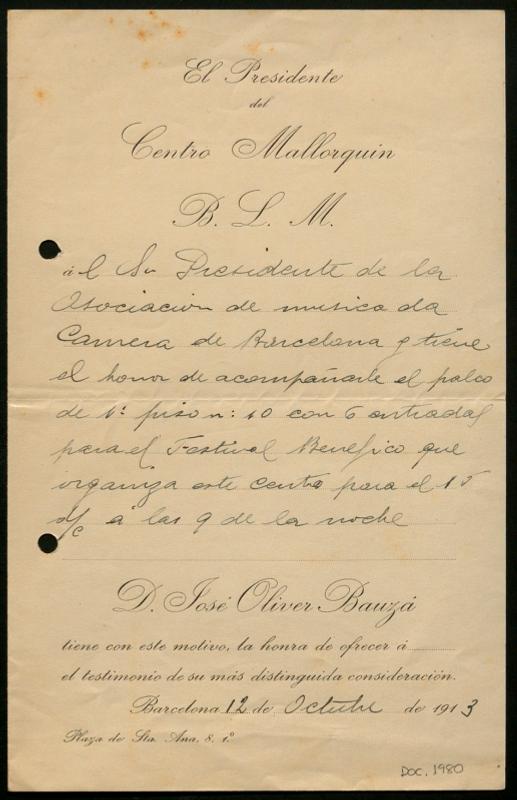 El Presidente
del
Centro Mallorquin
B. L. M.
á l Sr Presidente de la
Asociacion de musica da
Camera de Barcelona y tiene
el honor de acompañarle el palco
de 1º piso n: 10 con 6 entradas
para el Festival Benefico que
organiza este centro para el 15
d/c á las 9 de la noche
D. José Oliver Bauzá
tiene con este motivo, la honra de ofrecer á
el testimonio de su más distinguida consideración.
Barcelona 12 de Octubre de 1913
Plaza de Sta. Ana, 8. 1.º
DOC. 1980